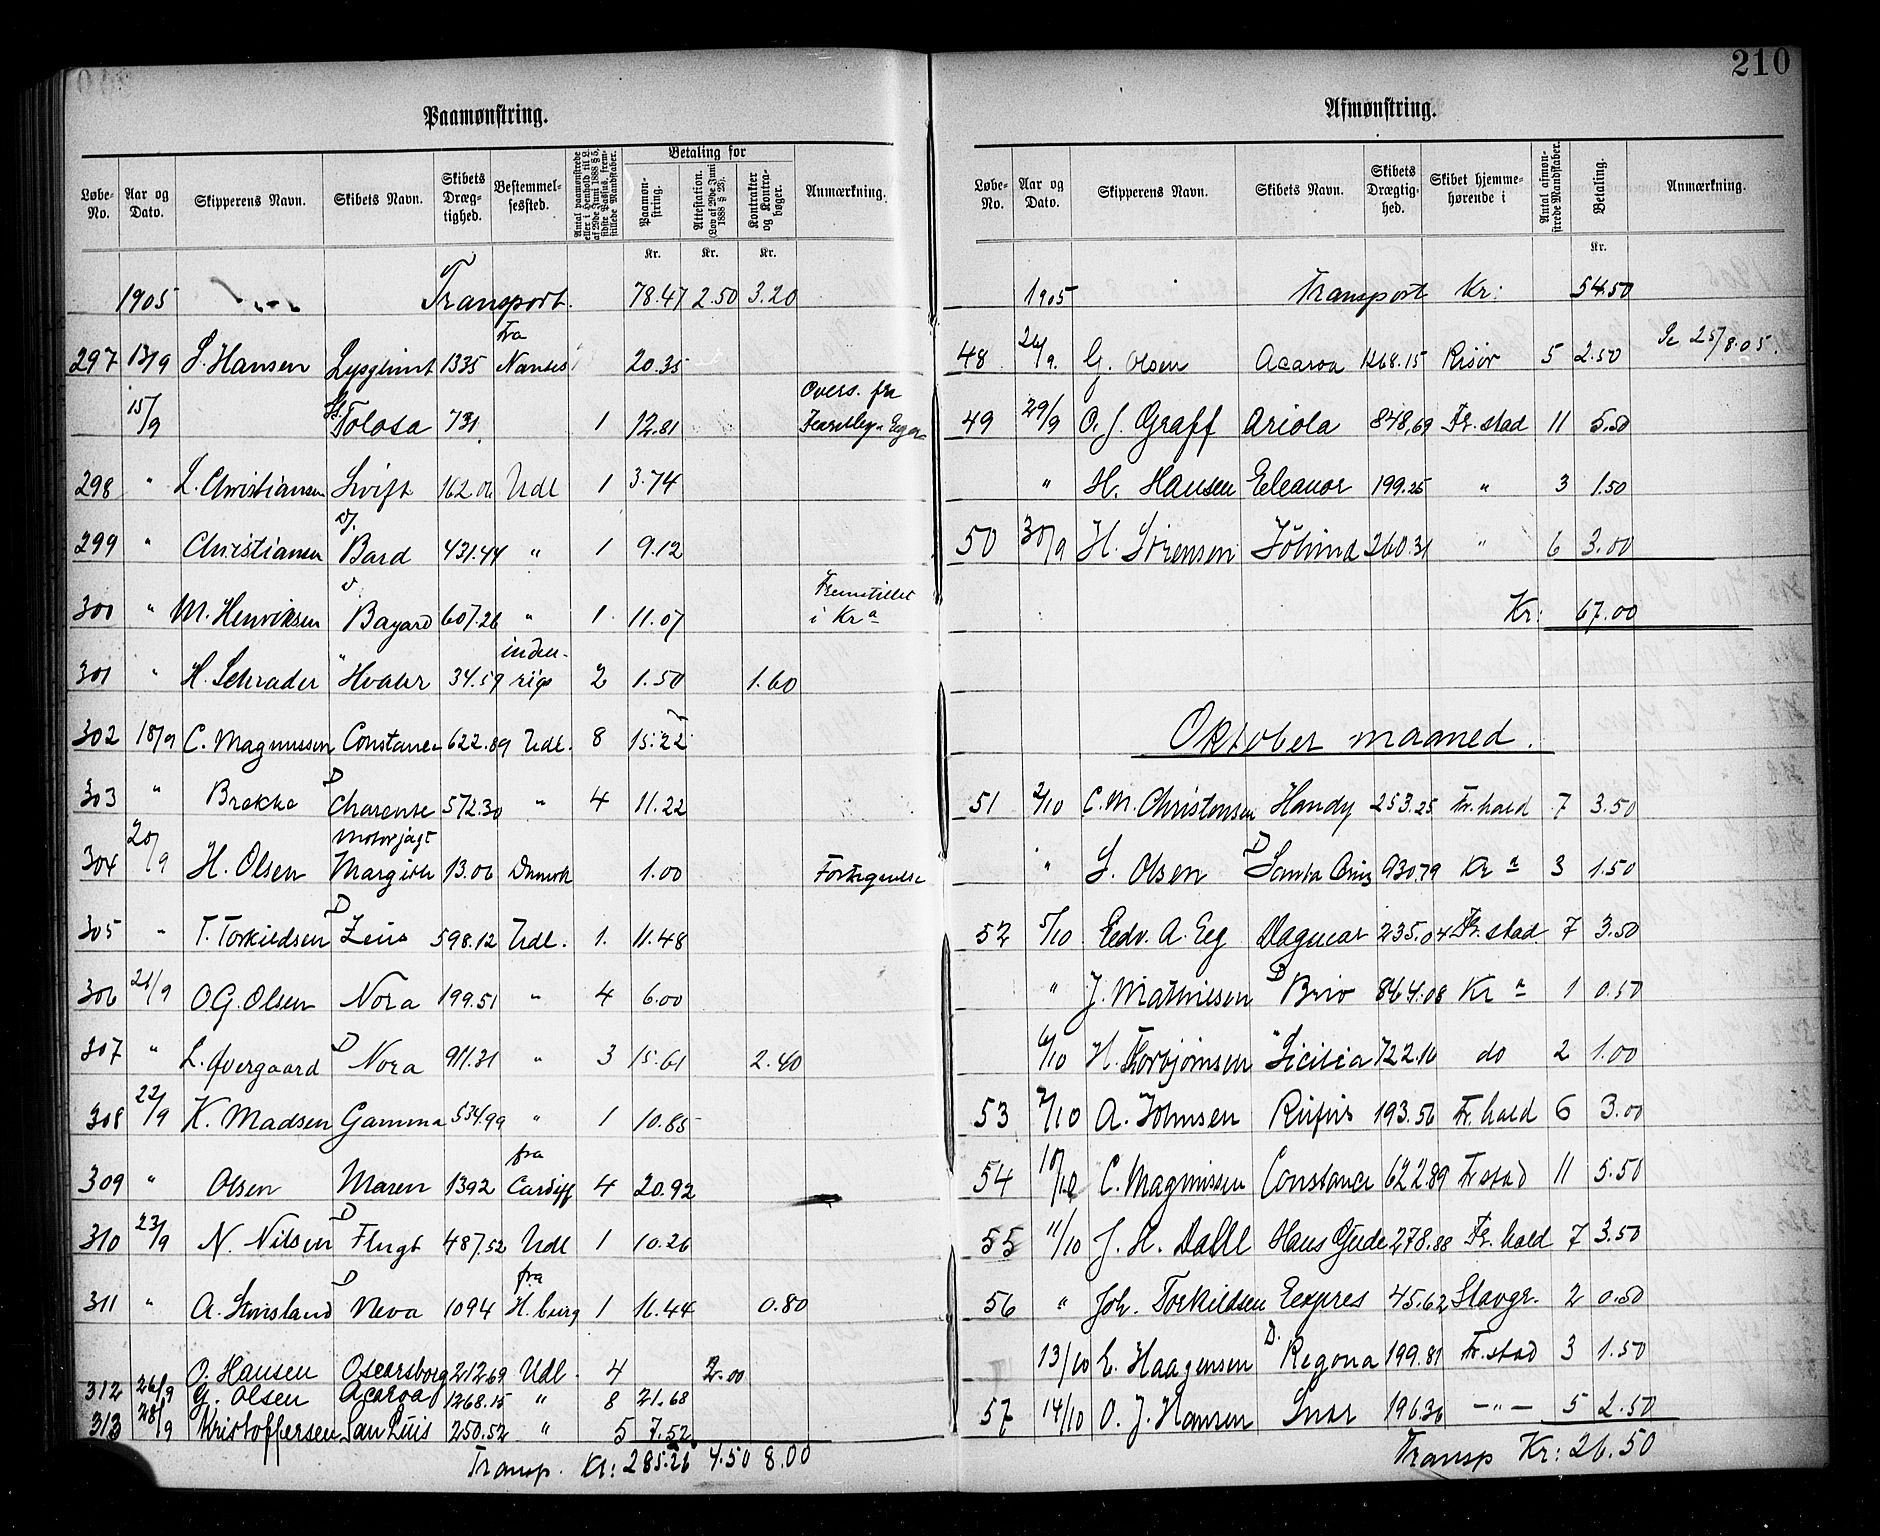 210
Paamønstring.
Løbe-No. Aar og Dato. Skipperens Navn. Skibets Navn. Skibets Dræg-tighed. Bestemmel-sessted. Antal paamønstrede eller i Henhold til L. af 29de Juni 1888 § 5, sidste Passus, frem-stillede Mandskaber. Betaling for Paamøn-string. Attestation. (Lov af 29de Juni 1888 § 23). Kontrakter og Kontra-bøger. Anmærkning.
Kr. Kr. Kr.
1905 Transport. 78.47 2.50 3.20
297 13/9 S. Hansen Lysglimt 1335 fra Nantes 20.35
15/9 Tolosa 731 1 12.81 Overs. fra
298 " L. Christiansen Swift 162.06 Udl 1 3.74
299 " Christiansen Bard 431.44 " 1 9.12
300 " M. Henriksen Bayard 607.26 " 1 11.07 Fremstillet i Kra
301 " H. Schrader " Hvaler 34.59 inden-rigs 2 1.50 1.60
302 18/9 C. Magnussen Constance 622.89 Udl. 8 15.22
303 " Brekke D Charente 572.30 " 4 11.22
304 20/9 H. Olsen Motorjagt Margith 13.06 Danmark 1.00 Fortegnelse
305 " T. Torkildsen D Zeus 598.12 Udl. 1. 11.48
306 21/9 O.G. Olsen Nora 199.51 " 4 6.00
307 " L. Overgaard D Nora 911.31 " 3 15.61 2.40
308 22/9 K. Madsen Gamma 534.99 " 1 10.85
309 " Olsen Maren 1392 fra Cardiff 4 20.92
310 23/9 N. Nilsen D Flugt 487.52 Udl 1 10.26
311 " A. D Neva 1094 fra H.burg 1 16.44 0.80
O. Hansen Oscarsborg 212.69 Udl. 4 2.00
312 26/9 G. Olsen Acaroa 1268.15 " 8 21.68
313 28/9 Kristoffersen San Luis 250.52 " 5 7.52
Transp. Kr: 285.26 4.50 8.00
Afmønstring.
Løbe-No. Aar og Dato. Skipperens Navn. Skibets Navn. Skibets Drægtig-hed. Skibet hjemme-hørende i Antal afmøn-strede Mandskaber. Betaling. Anmærkning.
Kr.
1905 Transport Kr: 54.50
48 26/9. G. Olsen Acaroa 1268.15 Risør 5 2.50 25/8.05.
49 29/9 O. J. Graff Ariola 848,69 Fr.stad 11 5.50
" H. Hansen Eleanor 199.25 " 3 1.50
50 30/9 H. Sørensen Jøhima 260.31 " 6 3.00
Kr: 67.00
Oktober maaned.
51 2/10 C. M. Christensen Handy 253.25 Fr.hald 7 3.50
" S. Olsen D Santa Cruz 930.79 Kra 3 1.50
52 5/10 Edv. A. Eeg Dagmar 235.04 Fr.stad. 7 3.50
" J. Mathiesen D Bravo 864.08 Kra 1 0.50
6/10 H. Thorbjørnsen " Sicilia 722.16 do 2 1.00
53 7/10 A. Johnsen Rufus 193.56 Fr.hald 6 3.00
54 10/10 C. Magnussen Constance 622.89 Fr.stad 11 5.50
55 11/10 J. H. Dahl Hans Gude 278.88 Fr.hald 7 3.50
56 " Joh. Torkildsen Expres 45.62 Stavgr. 2 0.50
13/10 E. Haagensen D. Regona 199.81 Fr.stad 3 1.50
57 14/10 O. J. Hansen Snar 196.36 -"- 5 2.50
Transp Kr: 26.50